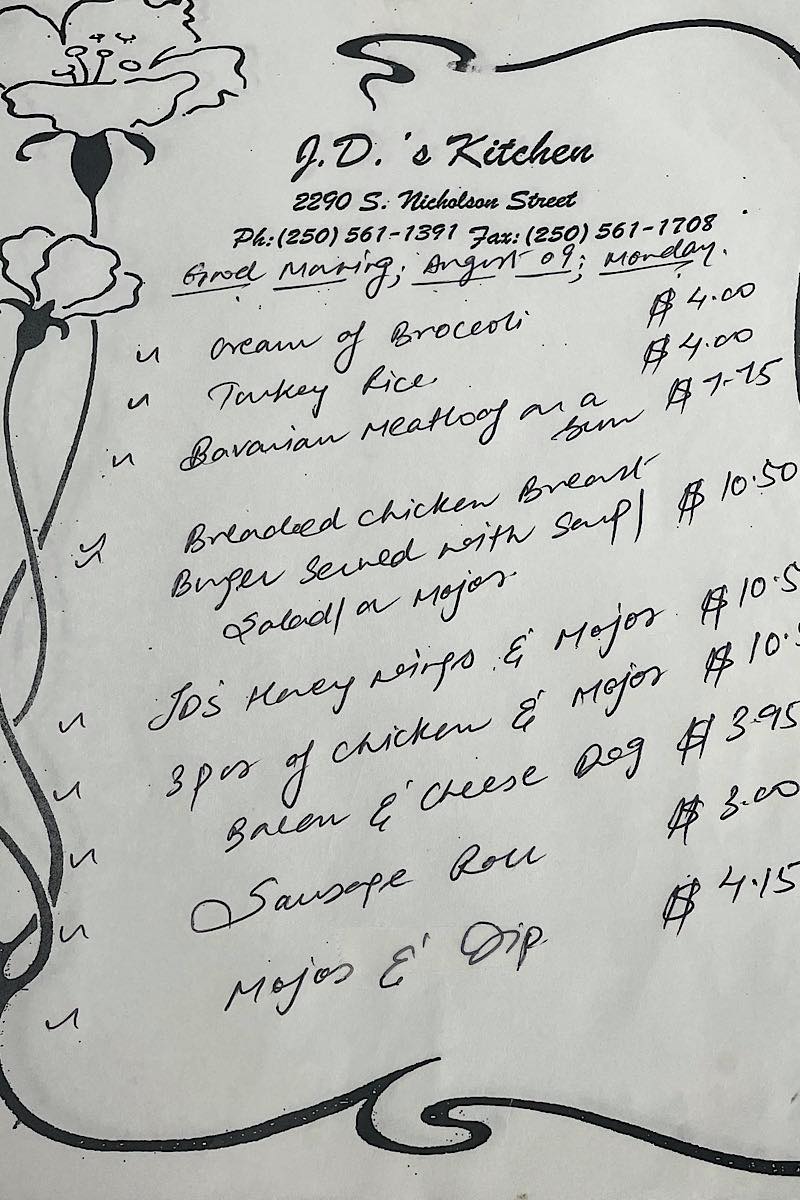 J.D.'s Kitchen
2290 S. Nicholson Street
Ph:(250) 561-1391 Fax:(250) 561-1708
Good Morning; August 09; Monday.
Cream of Broccoli $ 4.00
Turkey Rice $ 4.00
Bavarian Meatloaf on a $ 7.75
bun
Breaded chicken Breast
Burger Served with Soup/ $ 10.50
Salad/ or Mojos.
JD's Honey wings & Mojos $ 10.5
3 pcs of chicken & Mojos $ 10.
Bacon & Cheese Dog $ 3.95
Sausage Roll $ 3.00
Mojos & Dip $ 4.15